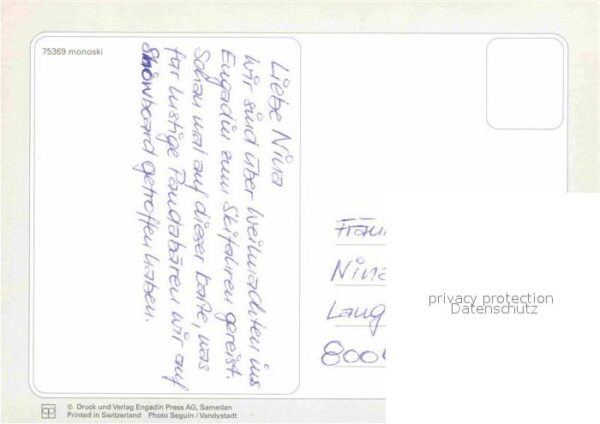 75369 monoski
Liebe Nina
Wir sind über Weihnachten ins
Engadin zum Skifahren gereist.
Schau mal auf dieser Karte, was
für lustige Pandabären wir auf
Snowboard getroffen haben.
Nina
8004
privacy protection
Datenschutz
© Druck und Verlag Engadin Press AG, Samedan
Printed in Switzerland Photo Seguin / Vandystadt